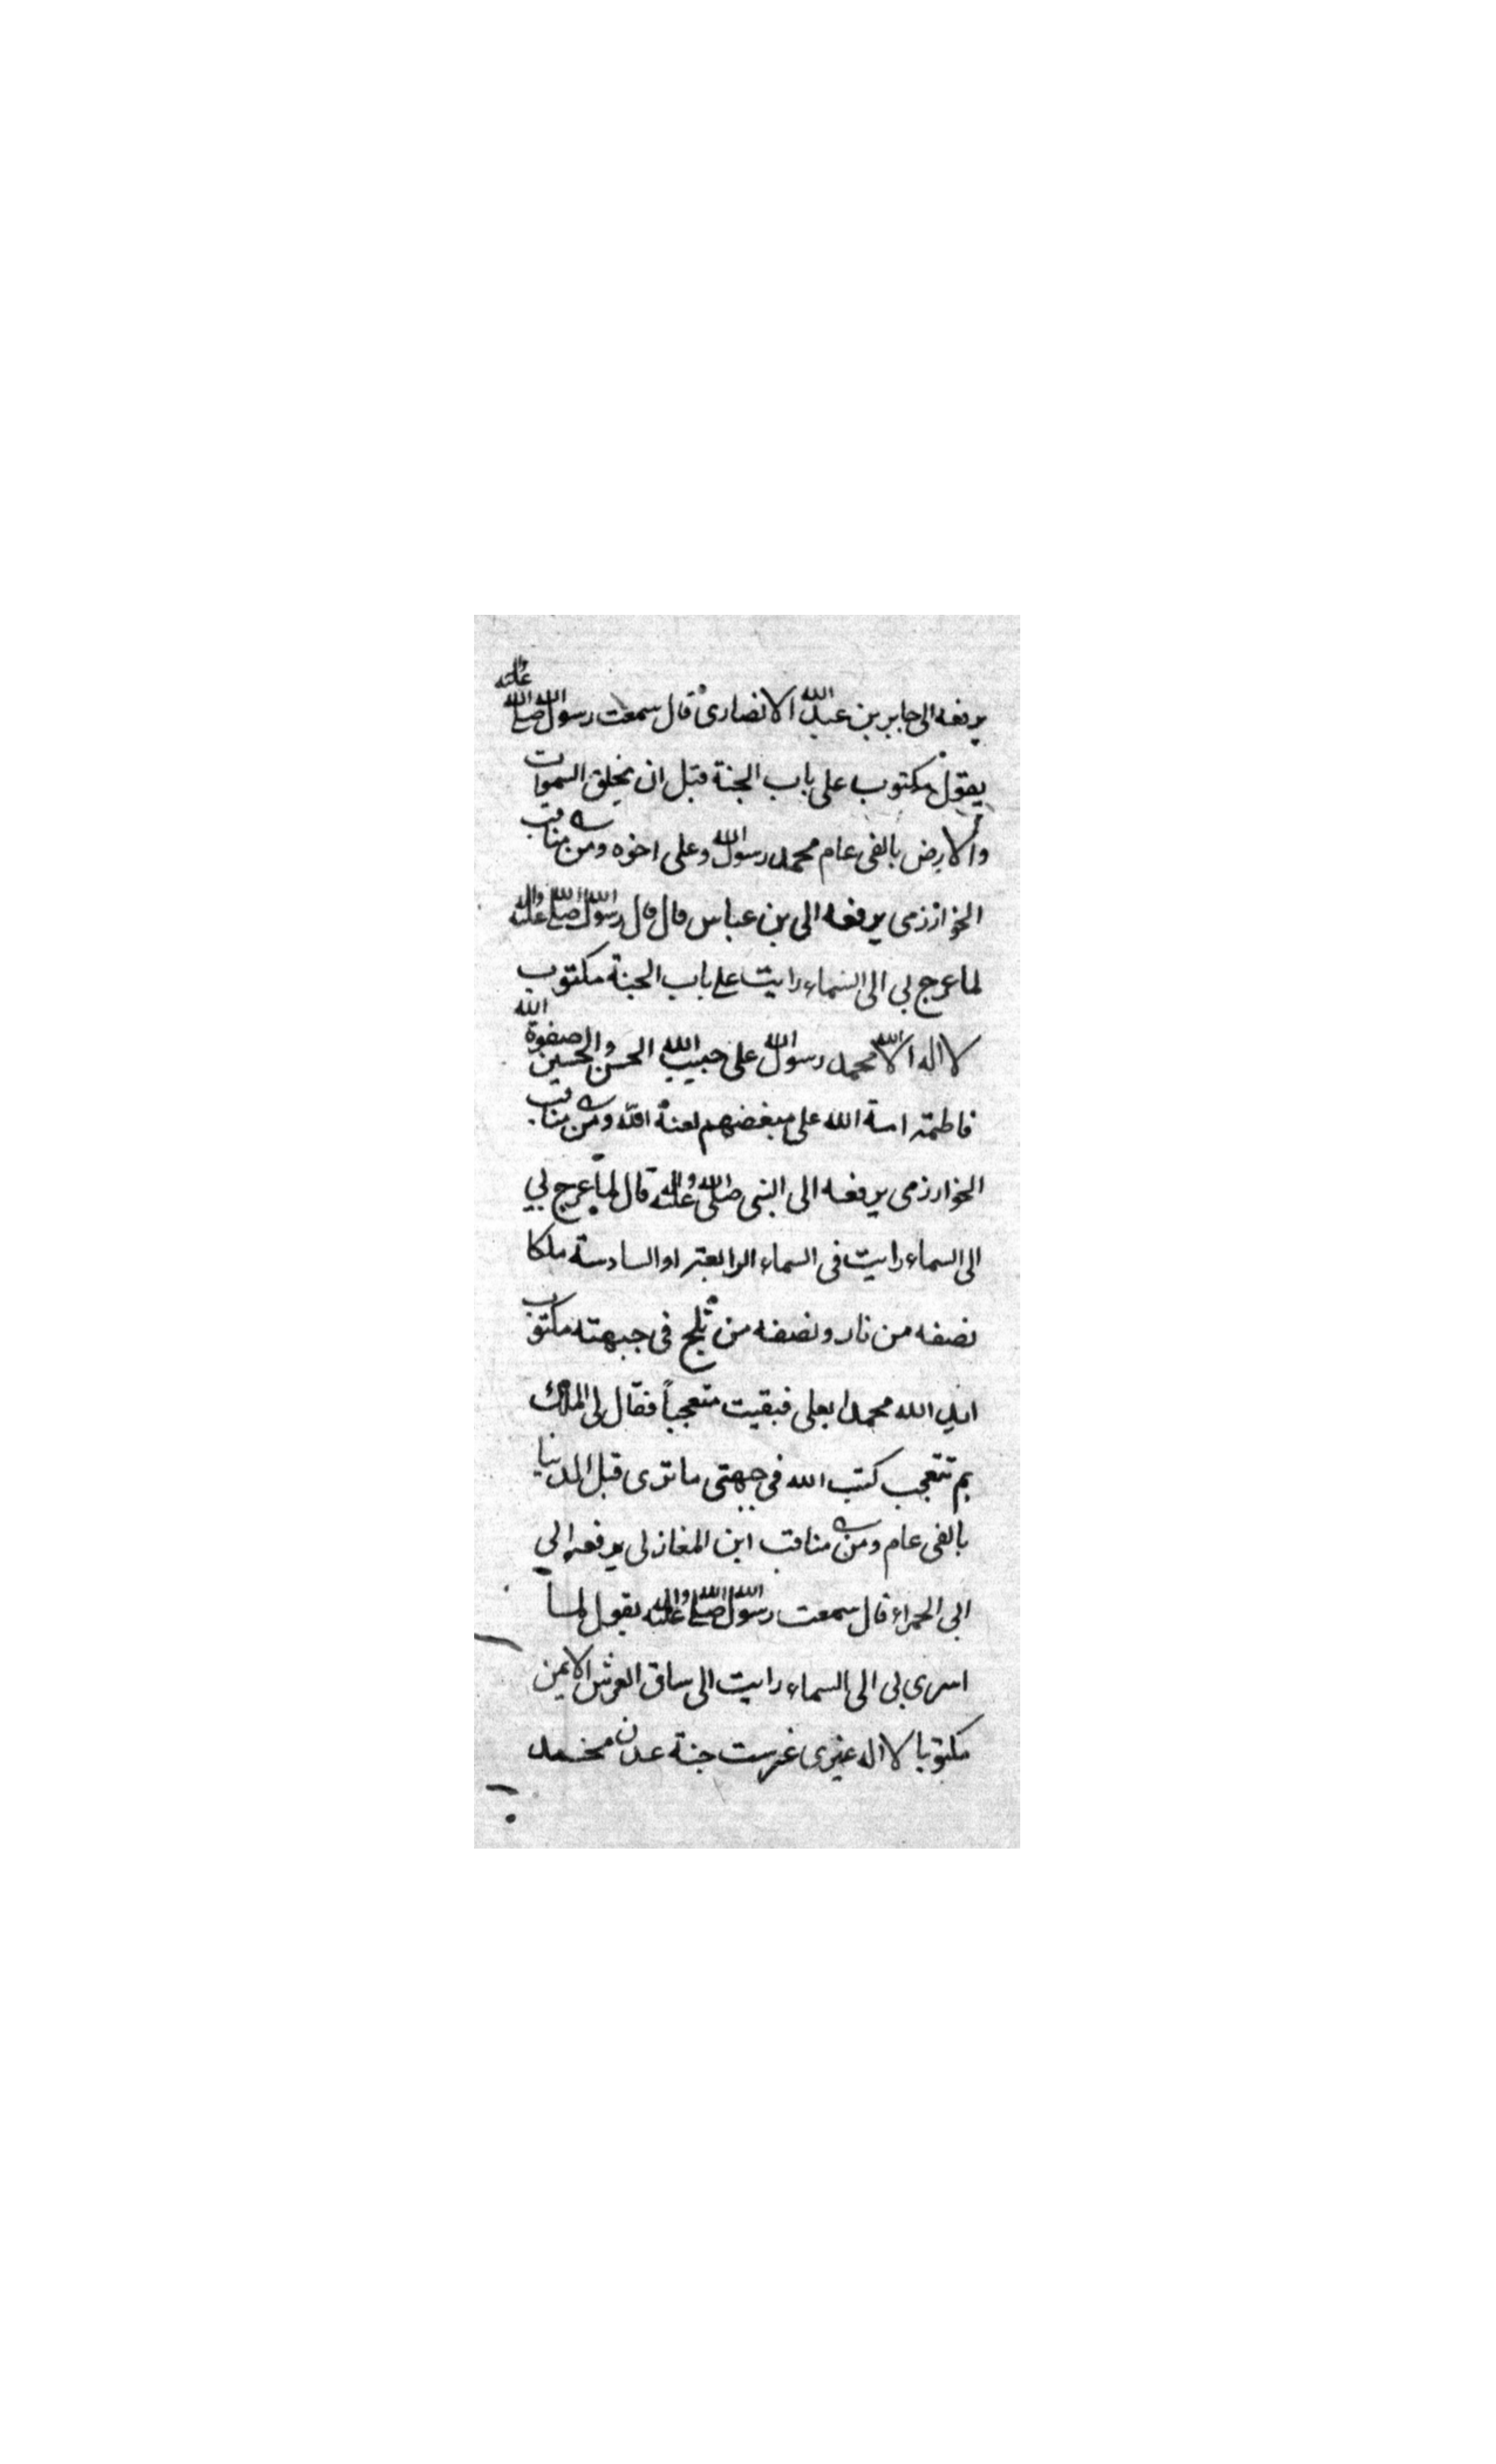 يرفعه الى جابر بن عبد الله الانصارى قال سمعت رسول الله صلى الله عليه واله
يقول مكتوب على باب الجنة قبل ان يخلق السموات
والارض بالفى عام محمد رسول الله وعلى اخوه ومن مناقب
الخوارزمى يرفعه الى بن عباس قال قال رسول الله صلى الله عليه واله
لما عرج بى الى السماء رايت على باب الجنة مكتوب
لا اله الا الله محمد رسول الله على حبيب الله الحسن والحسين صفوة الله
فاطمة امة الله على مبغضهم لعنة الله ومن مناقب
الخوارزمى يرفعه الى النبى صلى الله عليه واله قال لما عرج بي
الى السماء رايت فى السماء الرابعة او السادسة ملكا
نصفه من نار ونصفه من ثلج فى جبهته مكتوب
ايد الله محمدا بعلى فبقيت متعجباً فقال لى الملك
بم تتعجب كتب الله فى جبهتى ما ترى قبل الدنيا
بالفى عام ومن مناقب ابن المغازلى يرفعه الي
ابى الحمراء قال سمعت رسول الله صلى الله عليه واله يقول لما
اسرى بى الى السماء رايت الى ساق العرش الايمن
مكتوبا لا اله غيرى غرست جنة عدن محمد